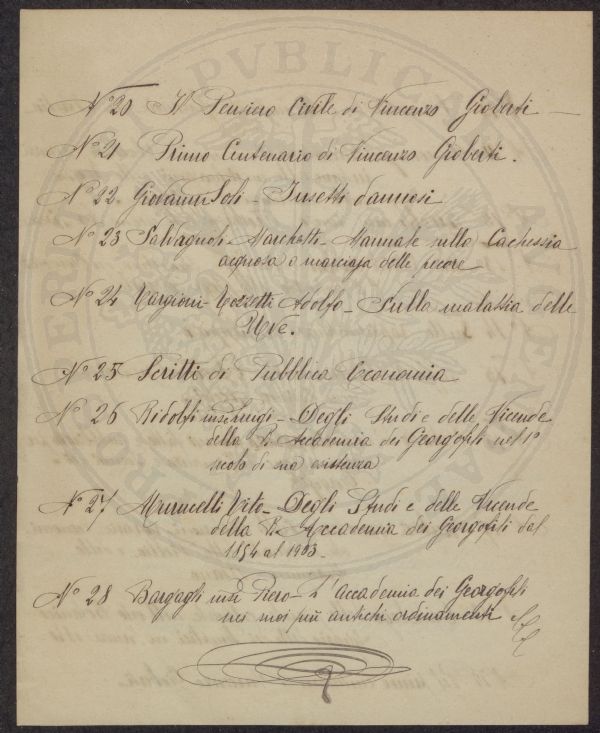 Nº 20 Il Pensiero Civile di Vincenzo Gioberti
Nº 21 Primo Centenario di Vincenzo Gioberti.
Nº 22 Giovanni Soli - Insetti dannosi
Nº 23 Salvagnoli-Marchetti - Manuale sulla Cachessia
acquosa o marciaja delle pecore
Nº 24 Targioni-Tozzetti Adolfo - Sulla malattia delle
Uve.
Nº 25 Scritti di Pubblica Economia
Nº 26 Ridolfi Luigi - Degli Studi e delle Vicende
della R. Accademia dei Georgofili nel 1º
secolo di sua esistenza
Nº 27 Vito - Degli Studi e delle Vicende
della R. Accademia dei Georgofili dal
1854 al 1903.
Nº 28 Bargagli Piero - L'Accademia dei Georgofili
nei suoi più antichi ordinamenti